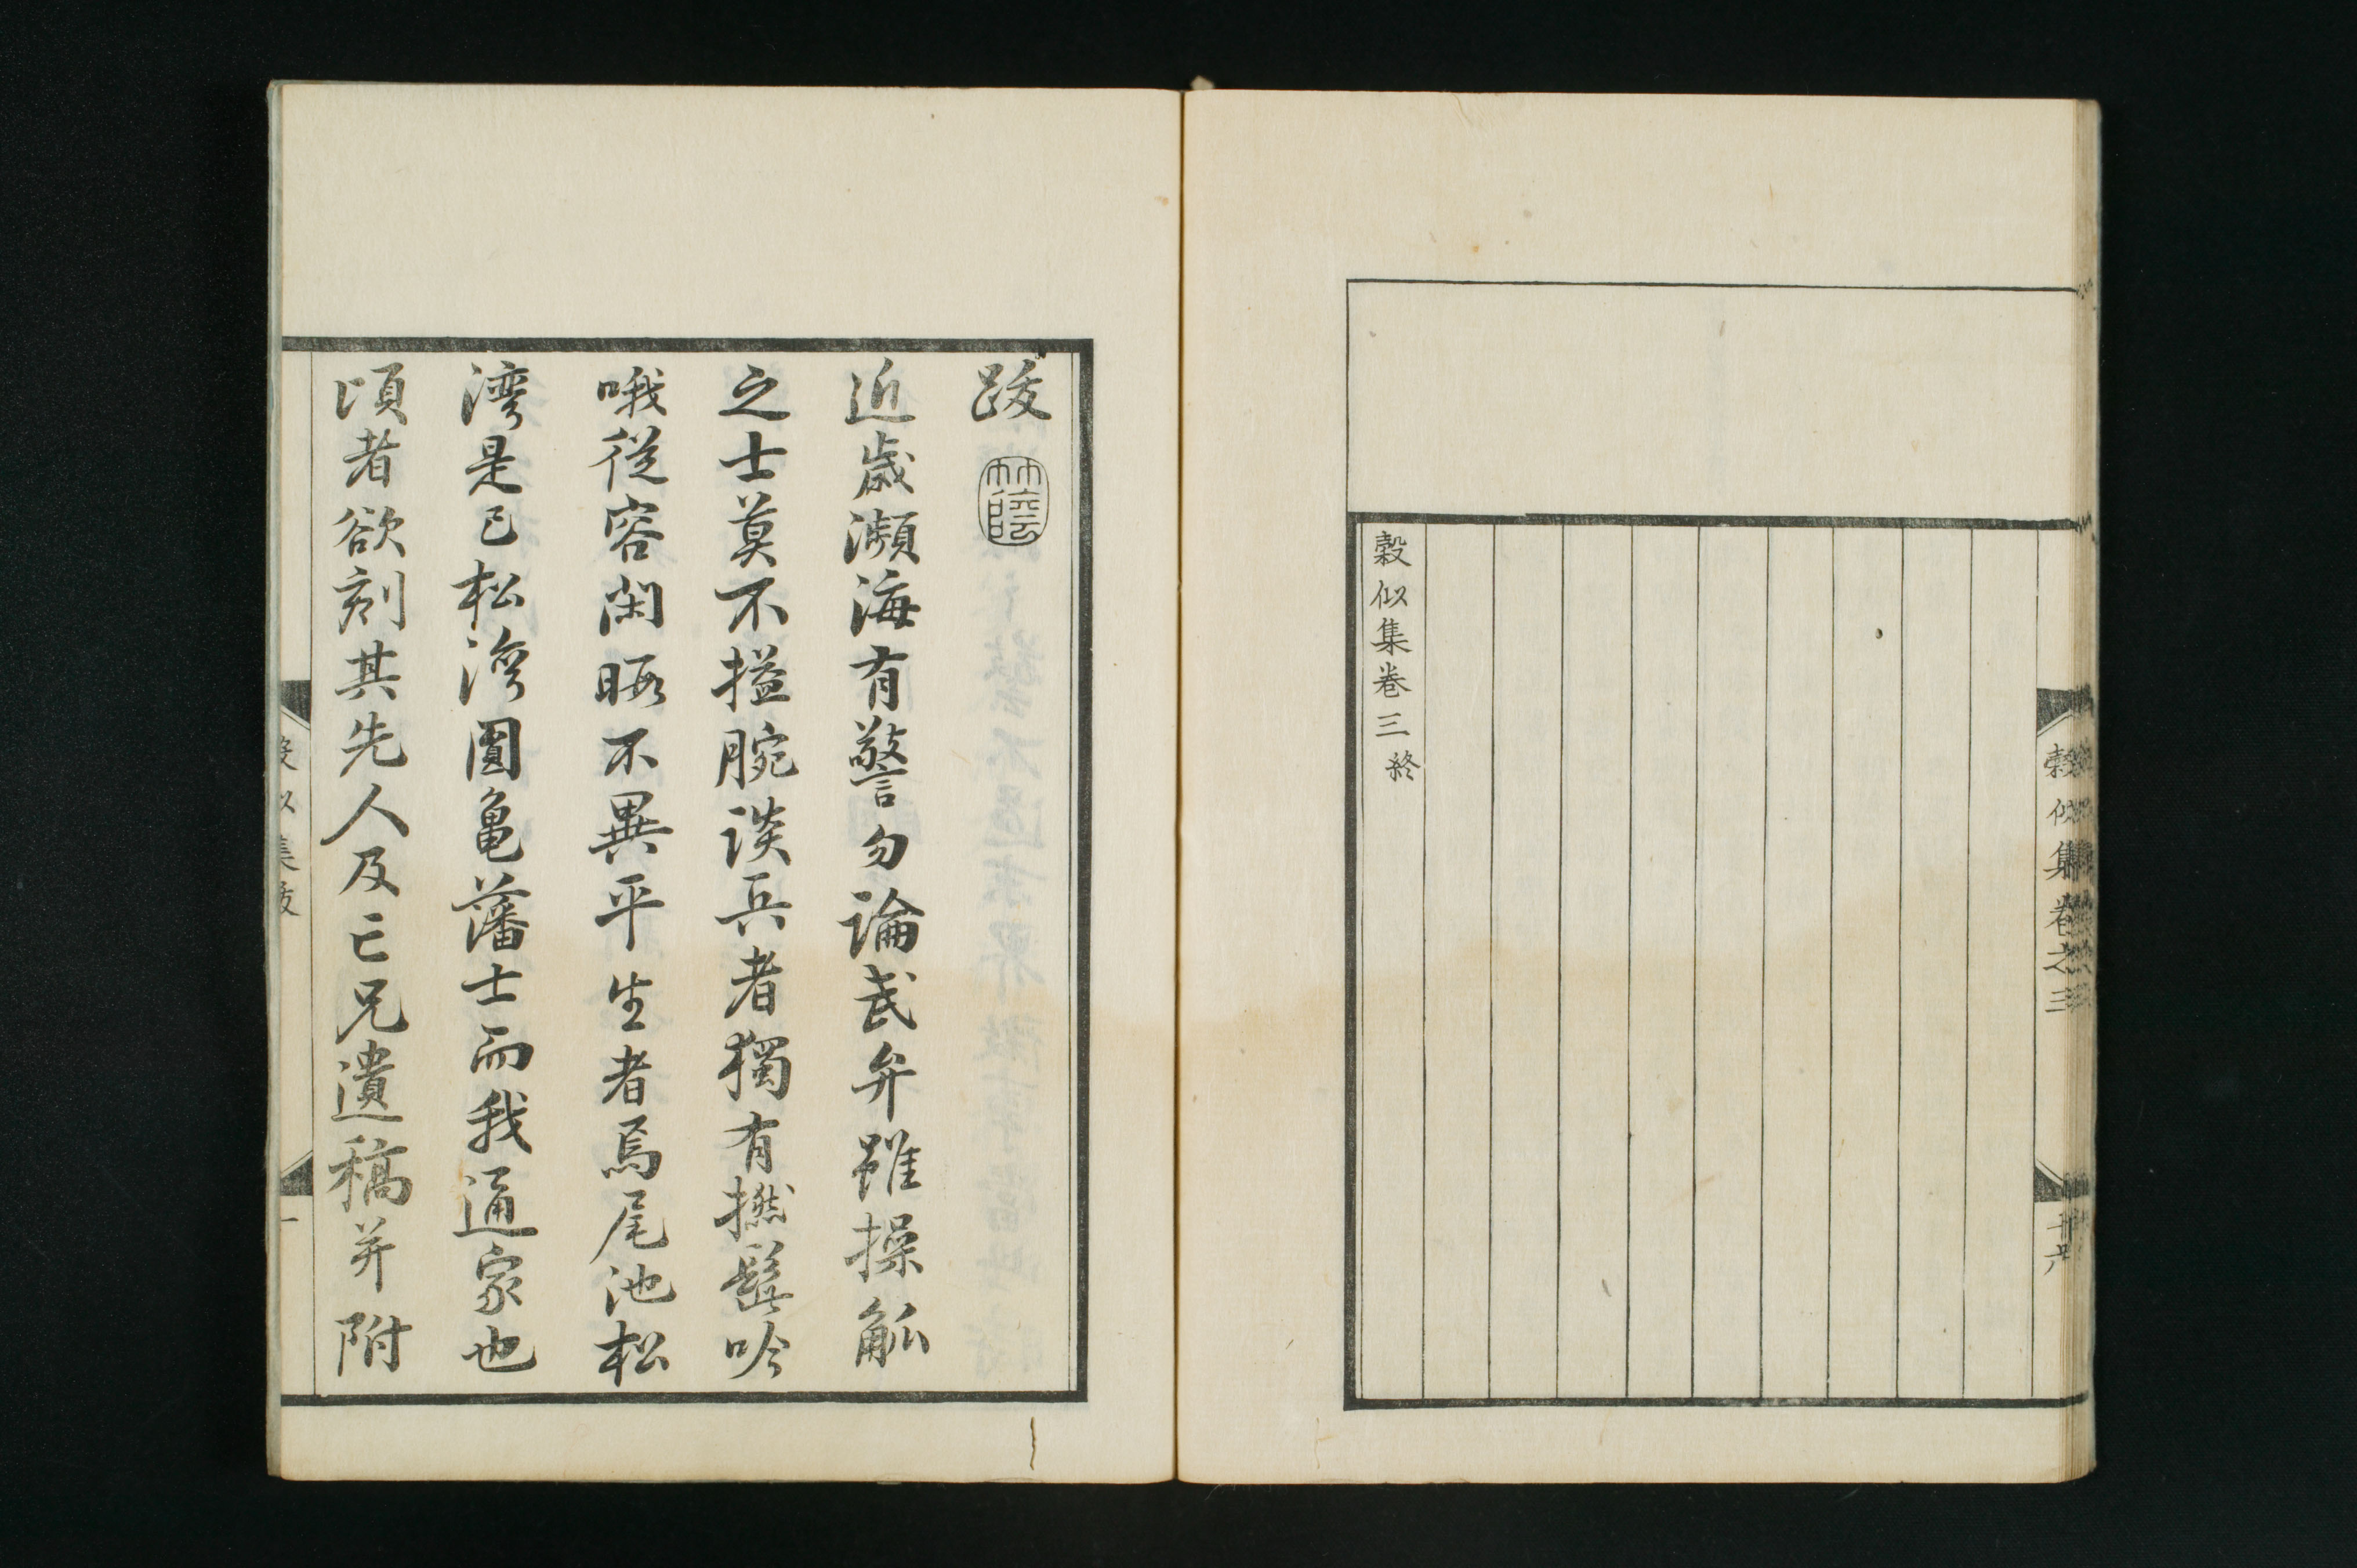 穀似集卷之三
穀似集卷三終
跋
近歳瀕海有警勿論武弁雖操觚
之士莫不搤腕談兵者獨有撚髭吟
哦従容閑暇不異平生者焉尾池松
湾是已松湾圓亀藩士而我通家也
頃者欲刻其先人及亡兄遺稿并附